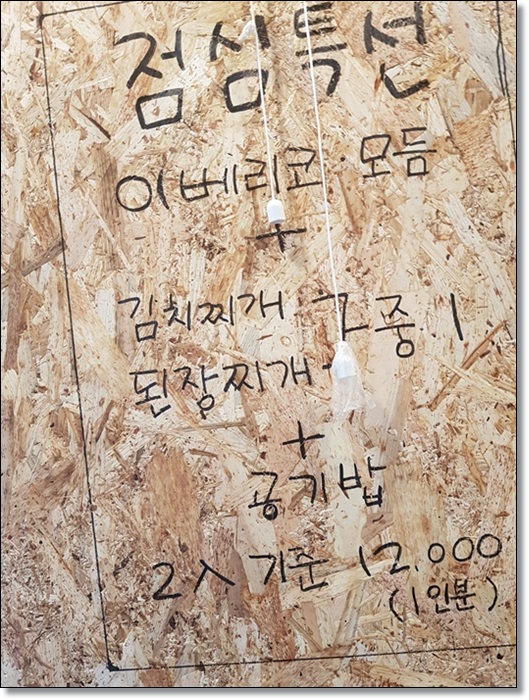 점심특선
이베리코·모듬
+
김치찌개 그중 1
된장찌개
+
공기밥
2人 기준 12,000
(1인분)